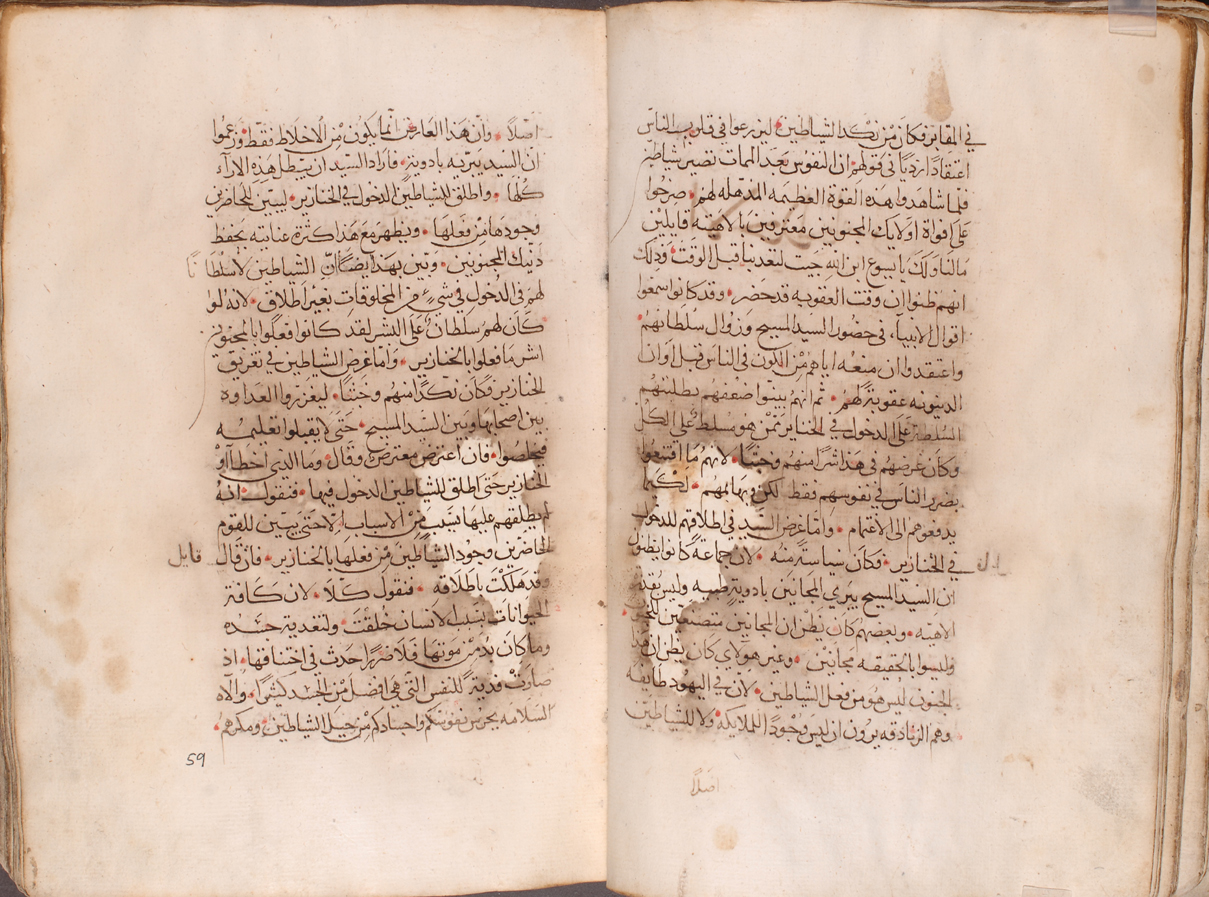 في المقابر فكان من نكد الشياطين ليزرعوا في قلوب الناس
اعتقادًا رديًا في قولهم ان النفوس بعد الممات تصير شياطين
فلما شاهدوا هذه القوة العظيمه المذهله لهم صرخوا
على افواه اولايك المجنونين معترفين بالاهيته قايلين
ما لنا ولك يا يسوع ابن الله جيت لتعذبنا قبل الوقت وذلك
انهم ظنوا ان وقت العقوبه قد حضر وقد كانوا سمعوا
اقوال الانبياء في حضور السيد المسيح وزوال سلطانهم
واعتقدوا ان منعه اياهم من الكون في الناس قبل اوان
الدينونه عقوبة لهم ثم انهم بينوا ضعفهم بطلبتهم
السلطة على الدخول في الخنازير ممن هو مسلط على الكل
وكان غرضهم في هذا شرا منهم وخبثا لانهم ما اقتنعوا
بضرر الناس في نفوسهم فقط لكن وبهايمهم لكيما
يدفعوهم الى الاغتمام واما غرض السيد في اطلاقهم للدخول
في الخنازير فكان سياسة منه لان جماعة كانوا يظنون
ان السيد المسيح يبري المجانين بادوية طبيه وليس بقدره
الاهيه وبعضهم كان يظن ان المجانين متصنعين للجنون
وليسوا بالحقيقه مجانين وغير هولاي كان يظن ان هذا
الجنون ليس هو من فعل الشياطين لان في اليهود طايفه
وهم الزنادقه يرون ان ليس وجودًا للملايكه ولا للشياطين
اصلًا
اصلًا وان هذا العارض انما يكون من الاخلاط فقط وزعموا
ان السيد يبريه بادوية فاراد السيد ان يبطل هذه الارآء
كلها واطلق للشياطين الدخول في الخنازير ليبين للحاضرين
وجودها من فعلها ويظهر مع هذا كثرة عنايته بحفظ
ذنيك المجنونين وتبين بهذا ايضًا ان الشياطين لا سلطانًا
لهم في الدخول في شيء من المخلوقات بغير اطلاق لانه لو
كان لهم سلطان على البشر لقد كانوا فعلوا بالمجنونين
اشر ما فعلوا بالخنازير واما غرض الشياطين في تغريق
الخنازير فكان نكدًا منهم وخبثًا ليغزروا العداوه
بين اصحابها وبين السيد المسيح حتى لا يقبلوا تعليمه
فيخلصوا فان اعترض معترض وقال وما الذي اخطاوا
الخنازير حتى اطلق للشياطين الدخول فيها فنقول انه
لم يطلقهم عليها بسبب من الاسباب الا حتى يبين للقوم
الحاضرين وجود الشياطين من فعلها بالخنازير فان قال قايل
وقد هلكت باطلاقه فنقول كلا لان كافة
الحيوانات بسبب الانسان خلقت ولتغدية جسده
وما كان بد من موتها فلا ضررًا حدث في اختناقها اذ
صارت فدية للنفس التي هي افضل من الجسد كثيرًا والاه
السلامه يحرس نفوسكم واجسادكم من حيل الشياطين ومكرهم
59